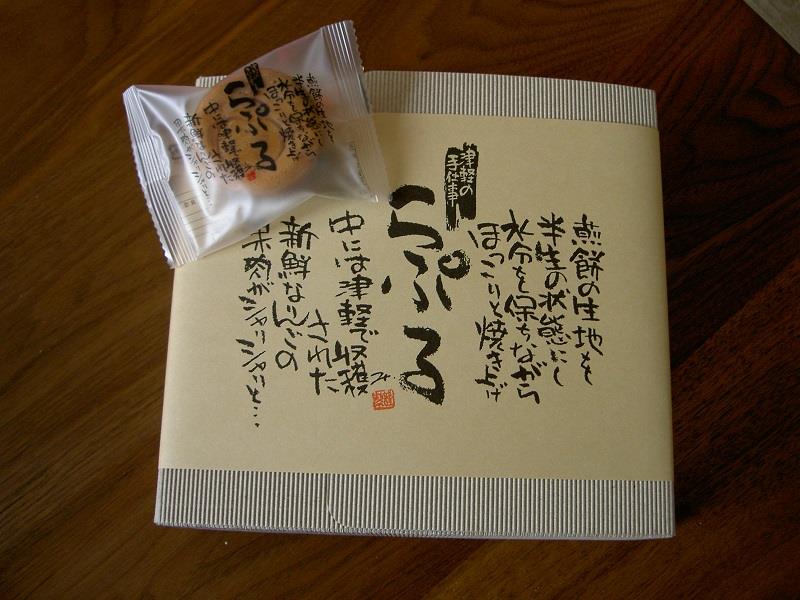 煎餅の生地を
半生の状態にし
水分を保ちながら
ほっこりと焼き上げ
津軽の
手仕事
らぷる
中には津軽で収穫
された
新鮮なりんごの
果肉がシャリシャリと…
煎餅の生地を
半生の状態にし
水分を保ちながら
ほっこりと焼き上げ
らぷる
中には津軽で収穫
された
新鮮なりんごの
果肉がシャリシャリと…